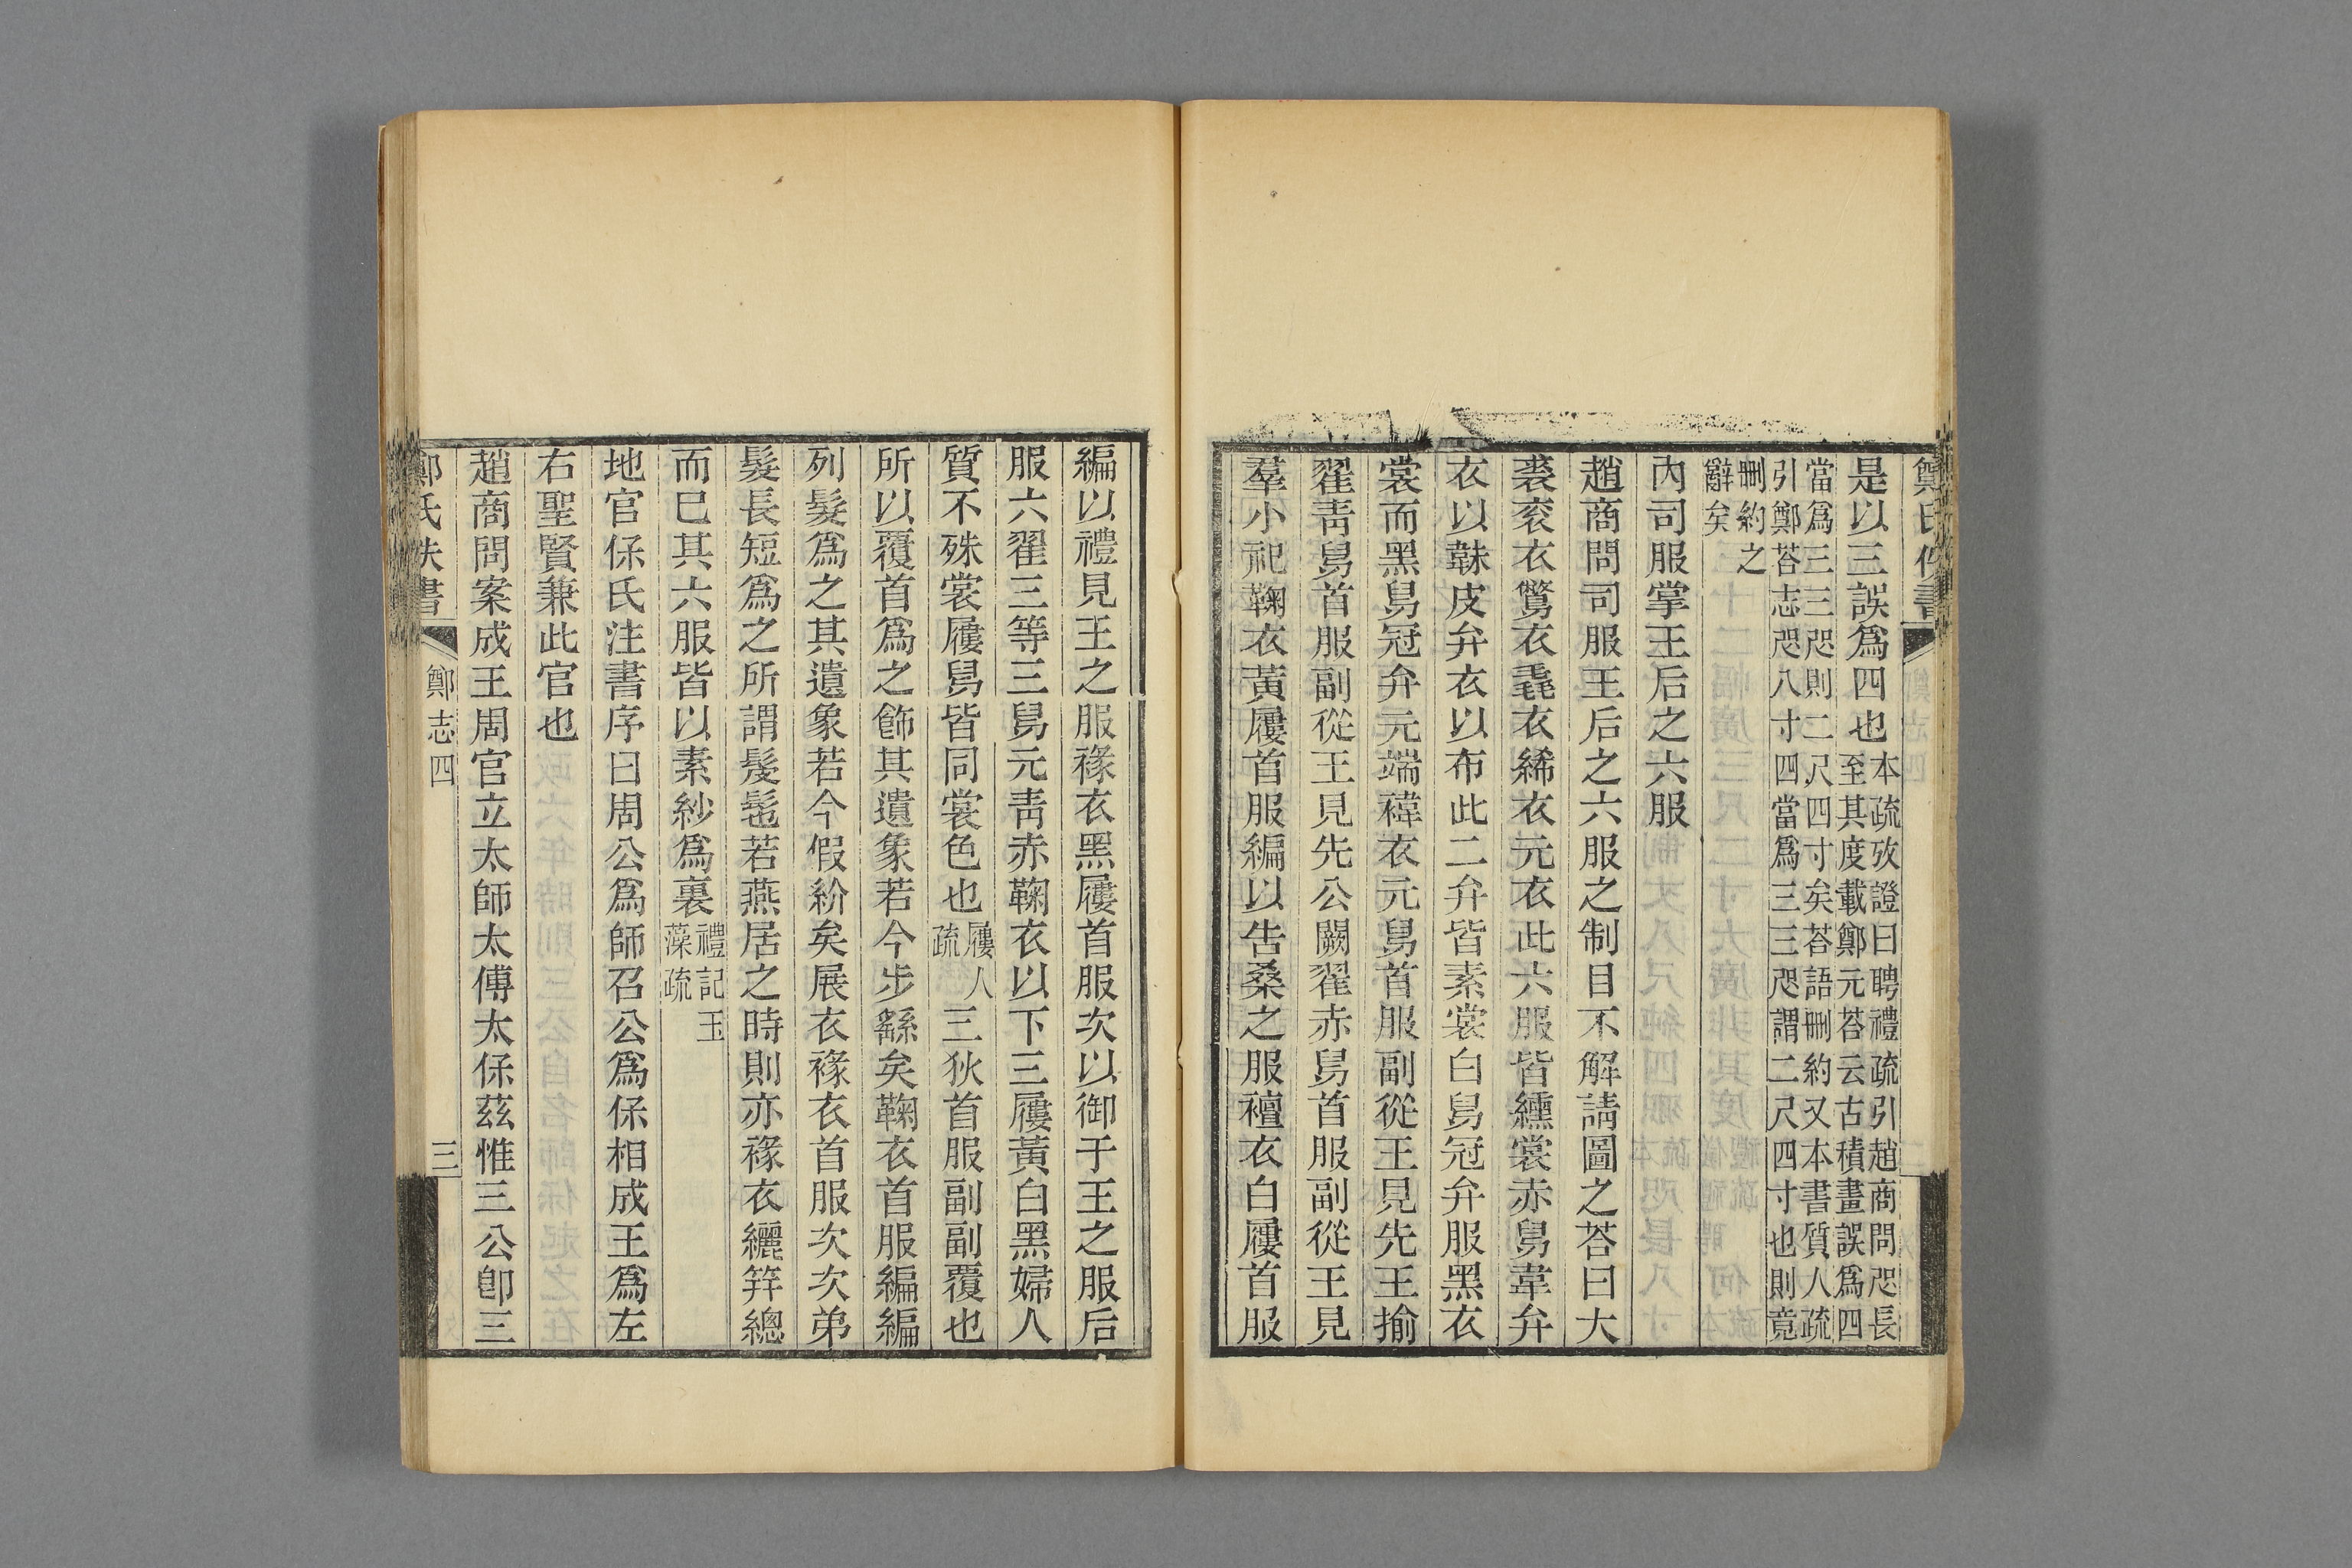 鄭氏佚書
是以三誤爲四也本疏攷證曰聘禮疏引趙商問咫長
至其度載鄭元荅云古積畫誤爲四
當爲三三咫則二尺四寸矣荅語刪約又本書質人疏
引鄭荅志咫八寸四當爲三三咫謂二尺四寸也則竟
刪約之
辭矣
內司服掌王后之六服
趙商問司服王后之六服之制目不解請圖之荅曰大
裘衮衣鷩衣毳衣絺衣元衣此六服皆纁裳赤舄韋弁
衣以韎皮弁衣以布此二弁皆素裳白舄冠弁服黑衣
裳而黑舄冠弁元端褘衣元舄首服副從王見先王揄
翟靑舄首服副從王見先公闕翟赤舄首服副從王見
羣小祀鞠衣黃屨首服編以告桑之服襢衣白屨首服
編以禮見王之服褖衣黑屨首服次以御于王之服后
服六翟三等三舄元靑赤鞠衣以下三屨黃白黑婦人
質不殊裳屨舄皆同裳色也屨人疏三狄首服副副覆也
所以覆首爲之飾其遺象若今步繇矣鞠衣首服編編
列髮爲之其遺象若今假紒矣展衣褖衣首服次次弟
髮長短爲之所謂髲髢若燕居之時則亦褖衣纚笄總
而巳其六服皆以素紗爲裏禮記玉藻疏
地官保氏注書序曰周公爲師召公爲保相成王爲左
右聖賢兼此官也
趙商問案成王周官立太師太傅太保茲惟三公卽三
鄭氏佚書
鄭志四
三